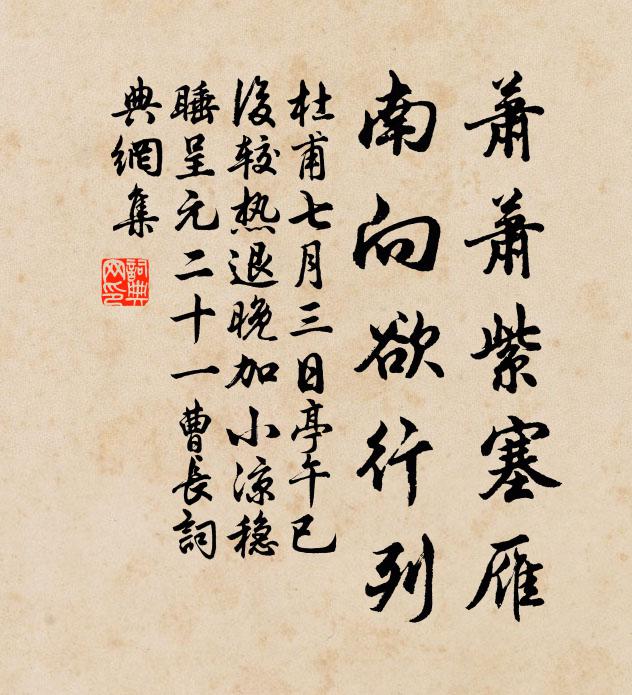 蕭蕭紫塞雁
南向欲行列
杜甫七月三日亭午已
後较热退晚加小凉稳
睡呈元二十一曹長詞
典網集
詞典
网印